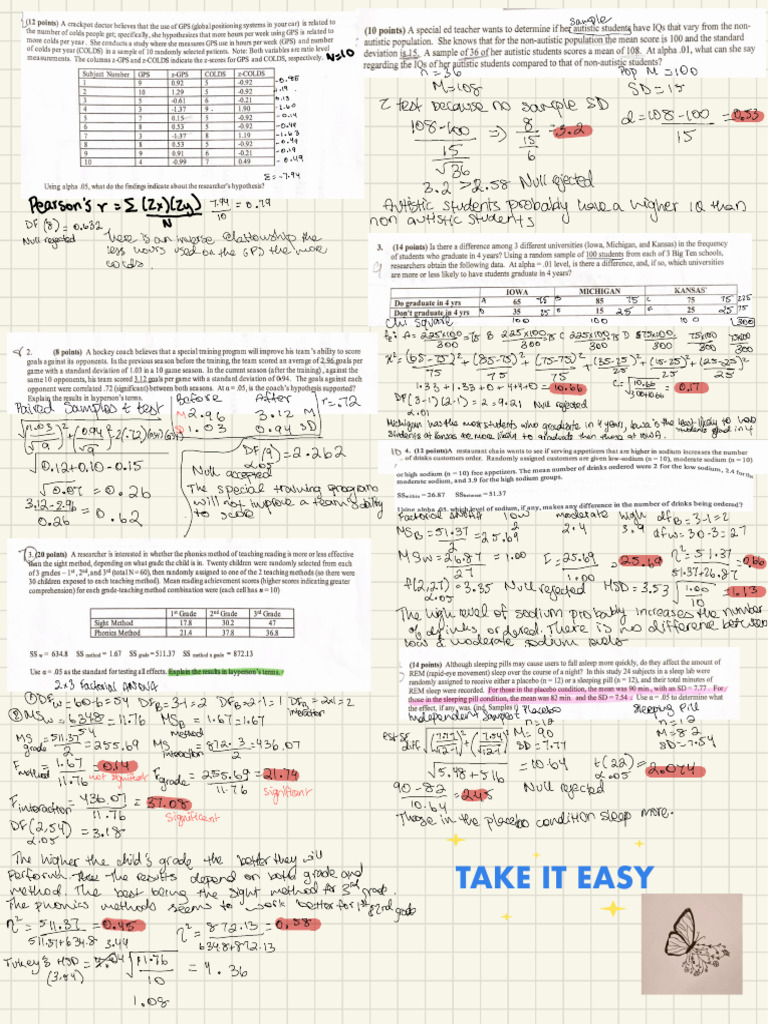 (12 points) A crackpot doctor believes that the use of GPS (global positioning systems in your car) is related to
the number of colds people get; specifically, she hypothesizes that more hours per week using GPS is related to
more colds per year. She conducts a study where she measures GPS use in hours per week (GPS) and number
of colds per year (COLDS) in a sample of 10 randomly selected patients. Note: Both variables are ratio level
measurements. The columns z-GPS and COLDS indicate the z-scores for GPS and COLDS, respectively.
N=10
Subject Number GPS z-GPS COLDS z-COLDS
1 9 0.92 5 -0.92 -0.85
2 10 1.29 5 -0.92
3 5 -0.61 6 -0.21 0.13
4 3 -1.37 9 1.90 -2.60
5 7 0.15 5 -0.92 -0.14
6 8 0.53 5 -0.92 -0.49
7 3 -1.37 8 1.19 -1.63
8 8 0.53 5 -0.92 -0.49
9 9 0.91 6 -0.21 -0.19
10 4 -0.99 7 0.49 -0.49
Σ = -7.94
Using alpha .05, what do the findings indicate about the researcher's hypothesis?
Pearson's r = Σ(Zx)(Zy) / N
7.94 / 10 = 0.79
DF (8) = 0.632
Null rejected
There is an inverse relationship the
less hours used on the GPS the more
colds.
2. (8 points) A hockey coach believes that a special training program will improve his team's ability to score
goals against its opponents. In the previous season before the training, the team scored an average of 2.96 goals per
game with a standard deviation of 1.03 in a 10 game season. In the current season (after the training), against the
same 10 opponents, his team scored 3.12 goals per game with a standard deviation of 0.94. The goals against each
opponent were correlated .72 (significant) between both seasons. At α = .05, is the coach's hypothesis supported?
Explain the results in layperson's terms.
Paired Samples t test
Before After r=.72
M 2.96 3.12 M
1.03 0.94 SD
√0.12+0.10-0.15
√0.07 = 0.26
3.12-2.96 / 0.26 = 0.62
DF(9) = 2.262
α.05
Null accepted
The special training program
will not improve a team's ability
to score
3. (20 points) A researcher is interested in whether the phonics method of teaching reading is more or less effective
than the sight method, depending on what grade the child is in. Twenty children were randomly selected from each
of 3 grades – 1st, 2nd, and 3rd (total N = 60), then randomly assigned to one of the 2 teaching methods (so there were
30 children exposed to each teaching method). Mean reading achievement scores (higher scores indicating greater
comprehension) for each grade-teaching method combination were (each cell has n = 10)
1st Grade 2nd Grade 3rd Grade
Sight Method 17.8 30.2 47
Phonics Method 21.4 37.8 36.8
SS w = 634.8 SS method = 1.67 SS grade = 511.37 SS method x grade = 872.13
Use α = .05 as the standard for testing all effects. Explain the results in layperson's terms.
2x3 Factorial ANOVA
① DFw = 60-6=54 DFB=3-1=2 DFB=2-1=1 DFB=2x1=2
interaction
② MSw = 634.8 / 54 = 11.76 MSB method = 1.67÷1=1.67
MS grade = 511.37 / 2 = 255.69 MS interaction = 872.13 / 2 = 436.07
F method = 1.67 / 11.76 = 0.14 not significant
F grade = 255.69 / 11.76 = 21.74 significant
F interaction = 436.07 / 11.76 = 37.08 significant
DF (2,54) = 3.18
α.05
The higher the child's grade the better they will
perform. The results depend on both grade and
method. The best being the sight method for 3rd grade.
The phonics methods seems to work better for 1st & 2nd grade
η² = 511.37 / 511.37+634.8 = 0.45
η² = 872.13 / 634.8+872.13 = 0.58
Tukey's HSD = 3.44 √11.76 / 10 = 4.36
1.08
(10 points) A special ed teacher wants to determine if her autistic students have IQs that vary from the non-
sample
autistic population. She knows that for the non-autistic population the mean score is 100 and the standard
deviation is 15. A sample of 36 of her autistic students scores a mean of 108. At alpha .01, what can she say
regarding the IQs of her autistic students compared to that of non-autistic students?
n = 36 Pop M = 100
M = 108 SD = 15
Z test because no sample SD
108-100 / 15/√36 ⇒ 8 / 15/6 = 3.2
Z = 108-100 / 15 = 0.53
3.2 > 2.58 Null rejected
Autistic students probably have a higher IQ than
non autistic students
3. (14 points) Is there a difference among 3 different universities (Iowa, Michigan, and Kansas) in the frequency
of students who graduate in 4 years? Using a random sample of 100 students from each of 3 Big Ten schools,
researchers obtain the following data. At alpha = .01 level, is there a difference, and, if so, which universities
are more or less likely to have students graduate in 4 years?
IOWA MICHIGAN KANSAS
Do graduate in 4 yrs A 65 75 B 85 75 C 75 75 225
Don't graduate in 4 yrs D 35 25 15 25 25 75
100 100 100 300
Chi square
fe: A = 225x100 / 300 = 75 B 225x100 / 300 C 225x100 / 300 D 75x100 / 300 75x100 / 300 75x100 / 300
x² = (65-75)² / 75 + (85-75)² / 75 + (75-75)² / 75 + (35-25)² / 25 + (15-25)² / 25 + (25-25)² / 25
1.33 + 1.33 + 0 + 4+4+0 = 10.66
C = √10.66 / 300+10.66 = 0.17
DF (3-1)(2-1) = 2 = 9.21 Null rejected
α.01
Michigan has the most students who graduate in 4 years, Iowa is the least likely to have students grad in 4
students at Kansas are more likely to graduate then those at Iowa.
4. (12 points) A restaurant chain wants to see if serving appetizers that are higher in sodium increases the number
of drinks customers order. Randomly assigned customers are given low-sodium (n = 10), moderate sodium (n = 10)
or high sodium (n = 10) free appetizers. The mean number of drinks ordered were 2 for the low sodium, 2.4 for the
moderate sodium, and 3.9 for the high sodium groups.
SSwithin = 26.87 SSbetween = 51.37
Using alpha .05, which level of sodium, if any, makes any difference in the number of drinks being ordered?
low moderate high dfB=3-1=2
2 2.4 3.9 dfw=30-3=27
MSB = 51.37 / 2 = 25.69
MSw = 26.87 / 27 = 1.00
F = 25.69 / 1.00 = 25.69
η² = 51.37 / 51.37+26.87 = 0.66
f(2,27) = 3.35 Null rejected
α.05
HSD = 3.53 √1.00 / 10 = 1.13
The high level of sodium probably increases the number
of drinks ordered. There is no difference between
low & moderate sodium levels
(14 points) Although sleeping pills may cause users to fall asleep more quickly, do they affect the amount of
REM (rapid-eye movement) sleep over the course of a night? In this study 24 subjects in a sleep lab were
randomly assigned to receive either a placebo (n = 12) or a sleeping pill (n = 12), and their total minutes of
REM sleep were recorded. For those in the placebo condition, the mean was 90 min., with an SD = 7.77. For
those in the sleeping pill condition, the mean was 82 min. and the SD = 7.54. Use α = .05 to determine what
the effect, if any, was
Independent Samples t
Placebo Sleeping Pill
n=12 n=12
M=90 M=82
SD=7.77 SD=7.54
√5.48+5.16 = 10.64
t(22) = 2.074
α.05
90-82 / 10.64 = 2.45
Null rejected
Those in the placebo condition sleep more.
TAKE IT EASY